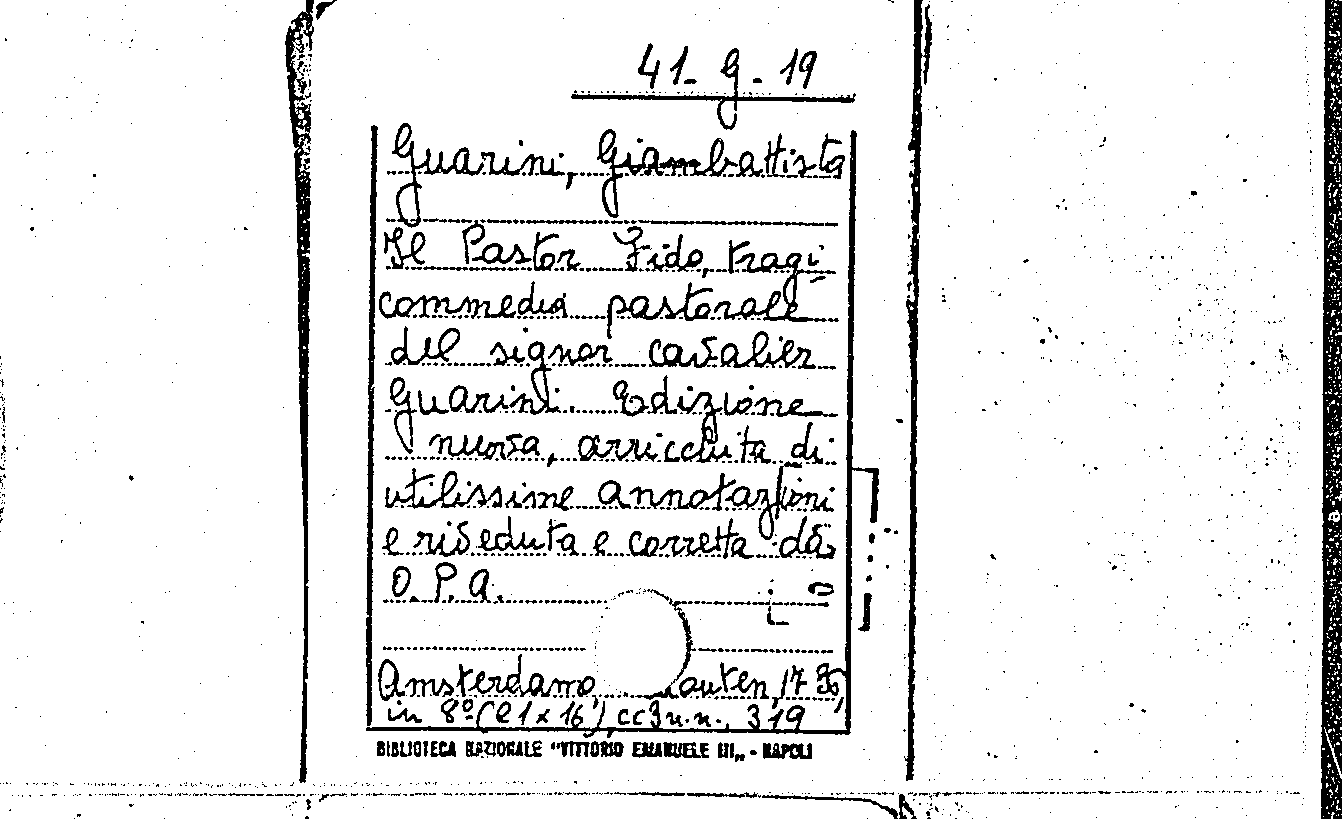 41- G - 19
Guarini, Giambattista
Il Pastor Fido, tragi
commedia pastorale
del signor cavalier
Guarini. Edizione
nuova, arricchita di
utilissime annotazioni
e riveduta e corretta da
O. P. A.
Amsterdamo auten, 1736,
in 8º (21 x 16), cc3n.n., 319
BIBLIOTECA NAZIONALE "VITTORIO EMANUELE III„ - NAPOLI